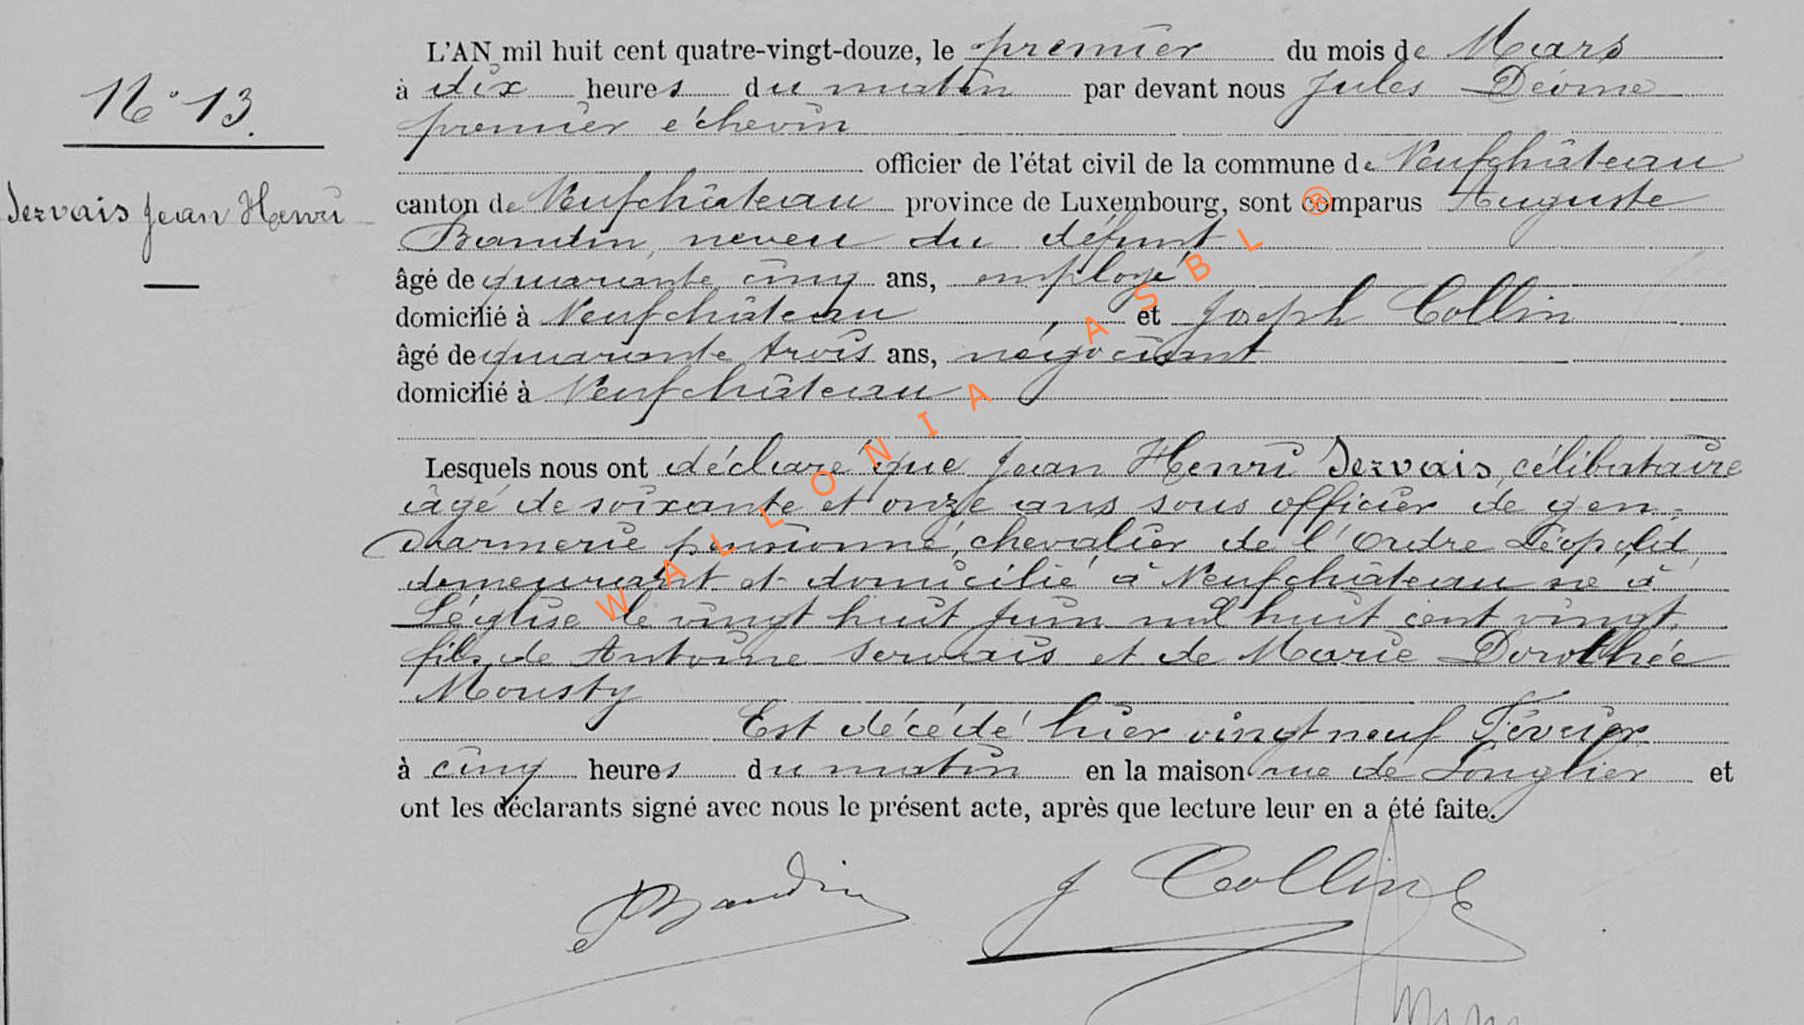 N° 13.
Servais Jean Henri
L'AN mil huit cent quatre-vingt-douze, le premier du mois de Mars
à dix heures du matin par devant nous Jules
premier échevin
officier de l'état civil de la commune de Neufchâteau
canton de Neufchâteau province de Luxembourg, sont comparus Auguste
Baudin, neveu du défunt
âgé de quarante cinq ans, employé
domicilié à Neufchâteau et Joseph Collin
âgé de quarante trois ans, négociant
domicilié à Neufchâteau
Lesquels nous ont déclaré que Jean Henri Servais, célibataire
âgé de soixante et onze ans sous officier de gen-
darmerie pensionné, chevalier de l'Ordre Léopold,
demeurant et domicilié à Neufchâteau né à
Léglise le vingt huit Juin mil huit cent vingt,
fils de Antoine Servais et de Marie Dorothée
Mousty
Est décédé hier vingt neuf Février
à cinq heures du matin en la maison rue de Longlier et
ont les déclarants signé avec nous le présent acte, après que lecture leur en a été faite.
Baudin
J Collin
WALLONIA ASBL ®